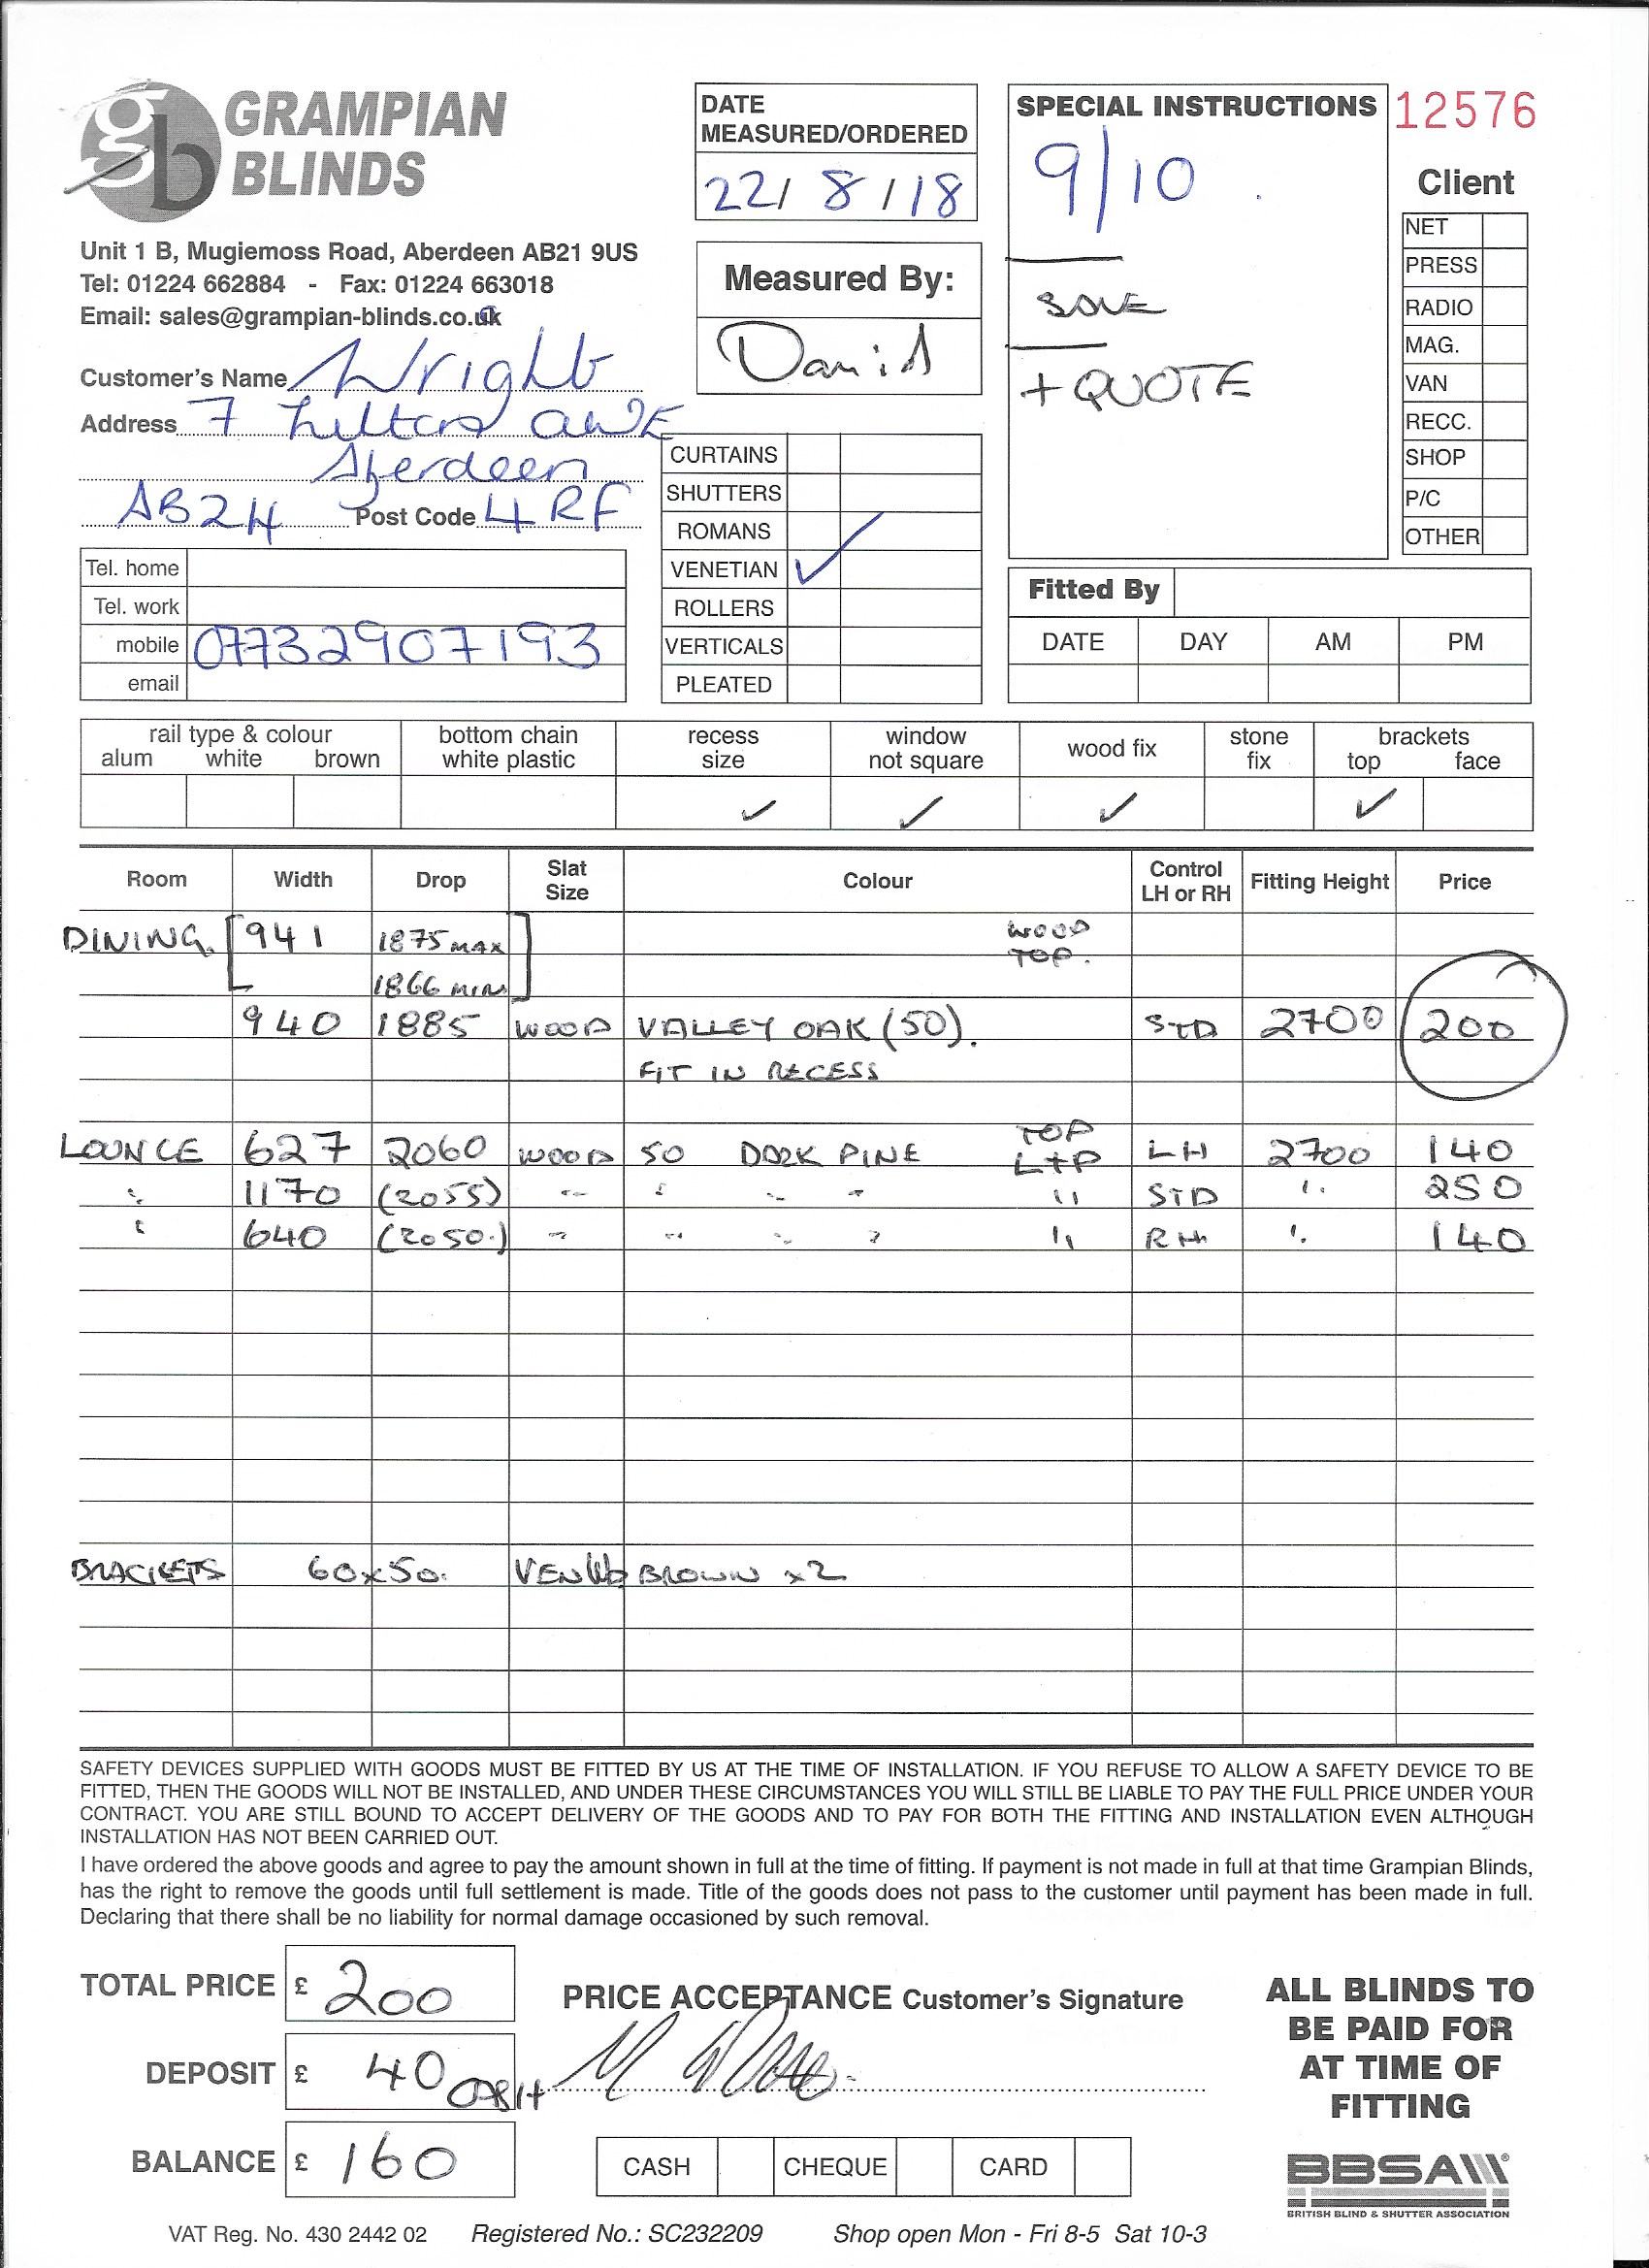 GRAMPIAN
BLINDS
gb
Unit 1 B, Mugiemoss Road, Aberdeen AB21 9US
Tel: 01224 662884 - Fax: 01224 663018
Email: sales@grampian-blinds.co.uk
DATE
MEASURED/ORDERED
22/ 8 / 18
Measured By:
David
SPECIAL INSTRUCTIONS
9/10
+ QUOTE
12576
Client
NET
PRESS
RADIO
MAG.
VAN
RECC.
SHOP
P/C
OTHER
Customer's Name Wright
Address 7
Aberdeen
AB24 Post Code 4RF
Tel. home
Tel. work
mobile 07732907193
email
CURTAINS
SHUTTERS
ROMANS
VENETIAN ✓
ROLLERS
VERTICALS
PLEATED
Fitted By
DATE DAY AM PM
rail type & colour bottom chain recess window wood fix stone brackets
alum white brown white plastic size not square fix top face
✓ ✓ ✓ ✓
Room Width Drop Slat Size Colour Control LH or RH Fitting Height Price
DINING [941 1875 MAX WOOD
1866 MIN] TOP.
940 1885 WOOD VALLEY OAK (50). STD 2700 200
FIT IN RECESS
TOP
LOUNGE 627 2060 WOOD 50 DARK PINE LH 2700 140
" 1170 (2055) " " " " " STD " 250
" 640 (2050.) " " " " " RH " 140
BRACKETS 60x50. BROWN x2
SAFETY DEVICES SUPPLIED WITH GOODS MUST BE FITTED BY US AT THE TIME OF INSTALLATION. IF YOU REFUSE TO ALLOW A SAFETY DEVICE TO BE
FITTED, THEN THE GOODS WILL NOT BE INSTALLED, AND UNDER THESE CIRCUMSTANCES YOU WILL STILL BE LIABLE TO PAY THE FULL PRICE UNDER YOUR
CONTRACT. YOU ARE STILL BOUND TO ACCEPT DELIVERY OF THE GOODS AND TO PAY FOR BOTH THE FITTING AND INSTALLATION EVEN ALTHOUGH
INSTALLATION HAS NOT BEEN CARRIED OUT.
I have ordered the above goods and agree to pay the amount shown in full at the time of fitting. If payment is not made in full at that time Grampian Blinds,
has the right to remove the goods until full settlement is made. Title of the goods does not pass to the customer until payment has been made in full.
Declaring that there shall be no liability for normal damage occasioned by such removal.
TOTAL PRICE £ 200
DEPOSIT £ 40 CASH
BALANCE £ 160
PRICE ACCEPTANCE Customer's Signature
CASH CHEQUE CARD
ALL BLINDS TO
BE PAID FOR
AT TIME OF
FITTING
BBSA
BRITISH BLIND & SHUTTER ASSOCIATION
VAT Reg. No. 430 2442 02 Registered No.: SC232209 Shop open Mon - Fri 8-5 Sat 10-3